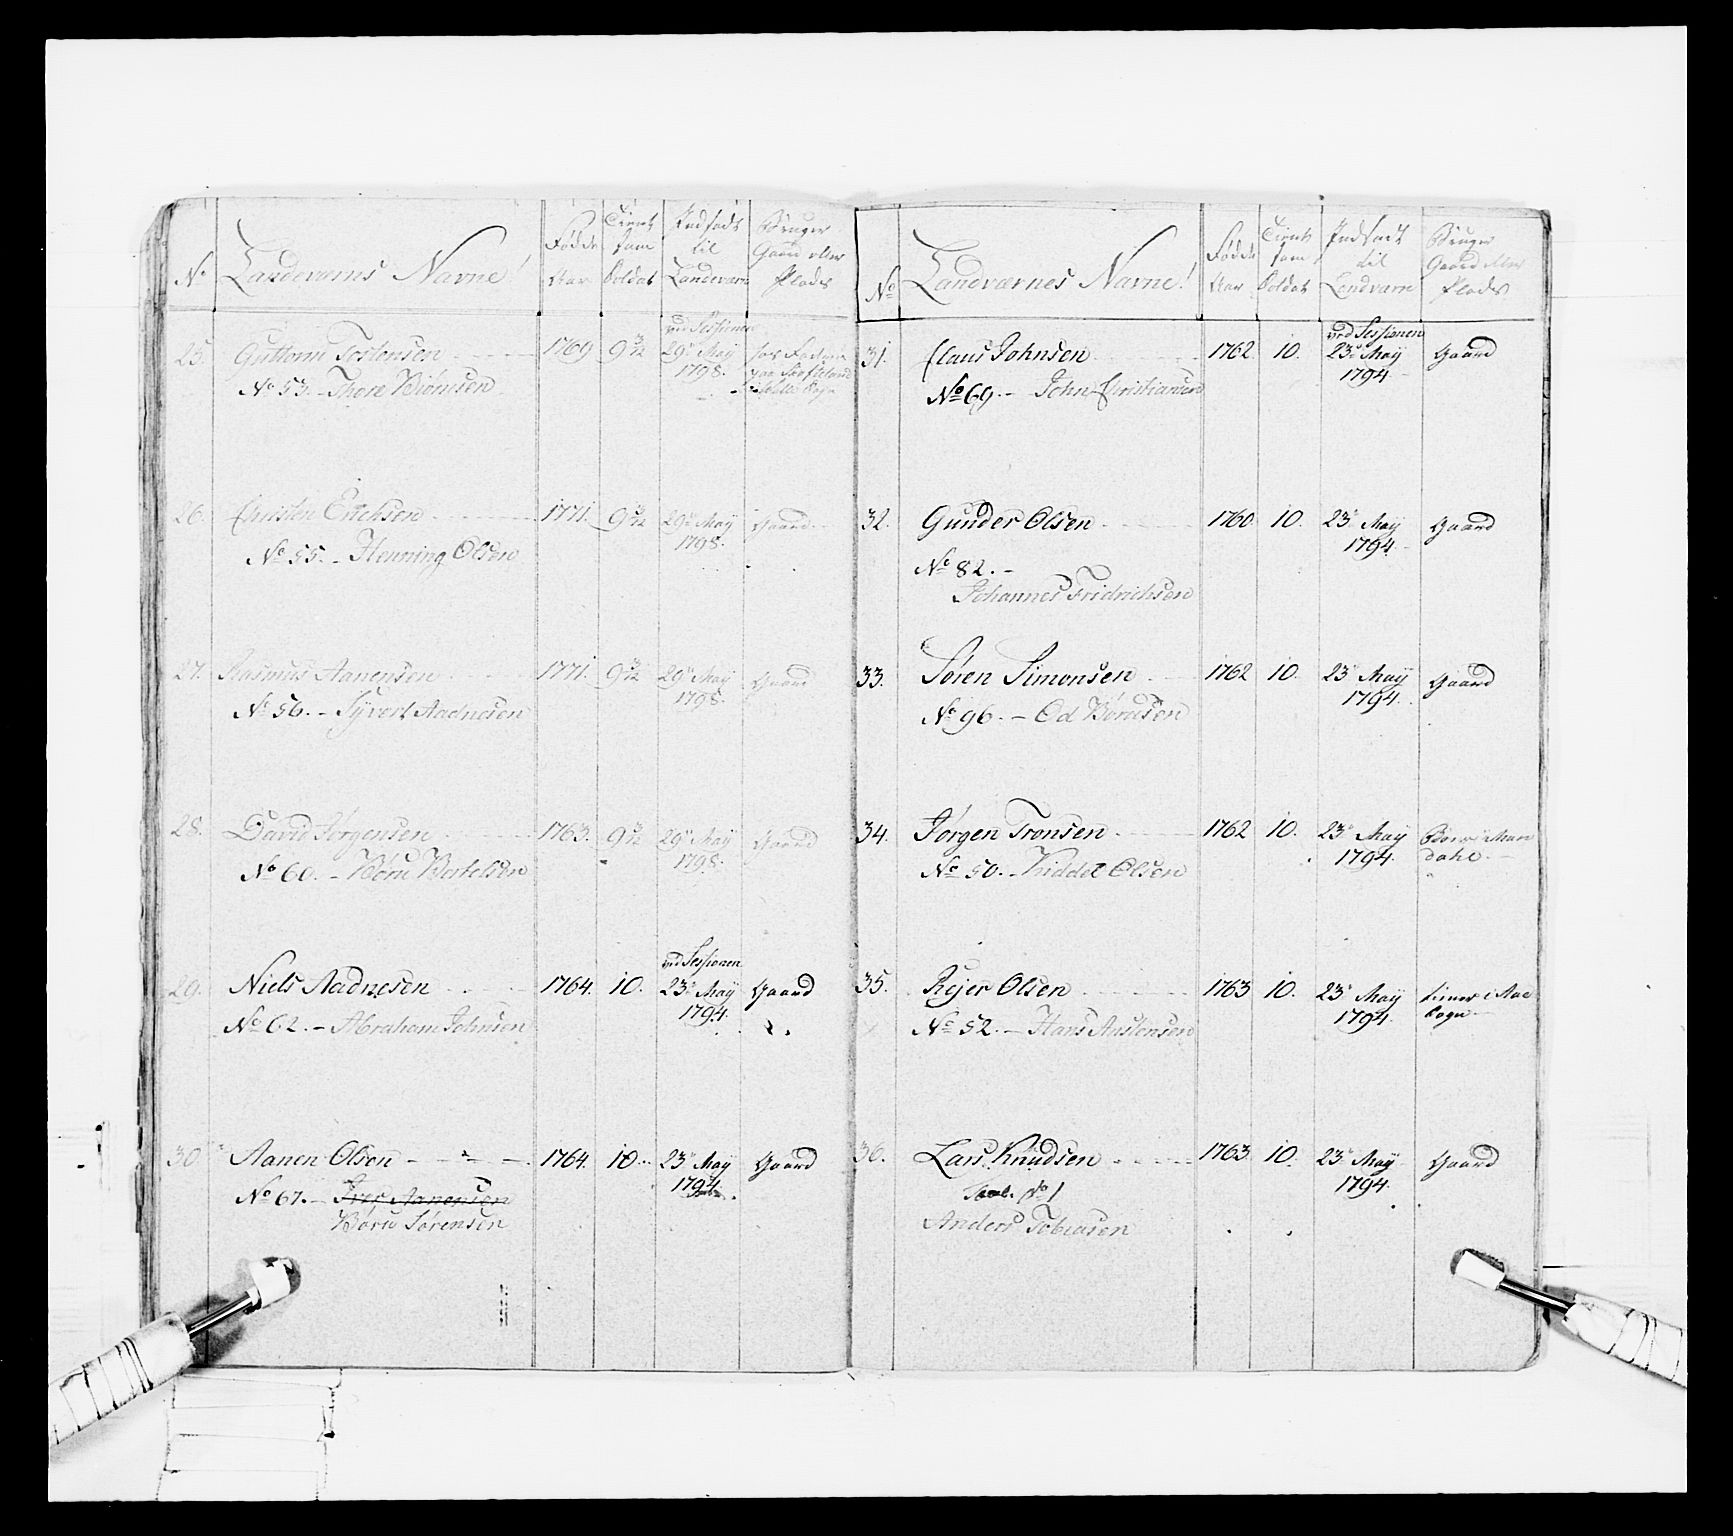 No
Landeværns Navne!
Fødde
Aar
Tient
som
Soldat
Indsadt
til
Landeværn
Bruger
Gaard eller
Plads
25. Guttorm Tostensen 1769 9 3/12 ved Sessionen
29de May
1798.
No 53. - Thore Biørnsen
26. Christen Erichsen 1771. 9 3/12 29de May Gaard
1798.
No 55. - Henning Olsen
27. Rasmus Aanensen 1771. 9 3/12 29de May Gaard
1798.
No 56. - Syvert Aadnesen
28. David Jørgensen 1763. 9 3/12 29de May Gaard
1798.
No 60. - Børu Bertelsen
29. Niels Aadnesen 1764. 10. ved Sessionen
23de May Gaard
1794.
No 62. - Abraham Johnsen
30 Aanen Olsen 1764. 10. 23de May Gaard
1794.
No 67. - Aanensen
Børu Sørensen
No
Landværnes Navne!
Fødde
Aar
Tient
som
Soldat
Indsadt
til
Landværn
Bruger
Gaard eller
Plads
31. Claus Johnsen 1762 10. ved Sessionen
23de May Gaard
1794.
No 69. - John Christiansen
32. Gunder Olsen 1760 10. 23de May Gaard
1794.
No 82. -
Johannes Fridrichsen
33. Søren Simonsen 1762 10. 23de May Gaard
1794.
No 96. - Od Børusen
34. Jørgen Tronsen 1762 10. 23de May Boer i Man
1794. dahl.
No 50. - Kiddel Olsen
35. Rejer Olsen 1763 10. 23de May
1794. Sogn
No 52. - Hans Austensen
36. Lars Knudsen 1763 10. 23de May Gaard
1794.
No 1
Anders Tobiasen